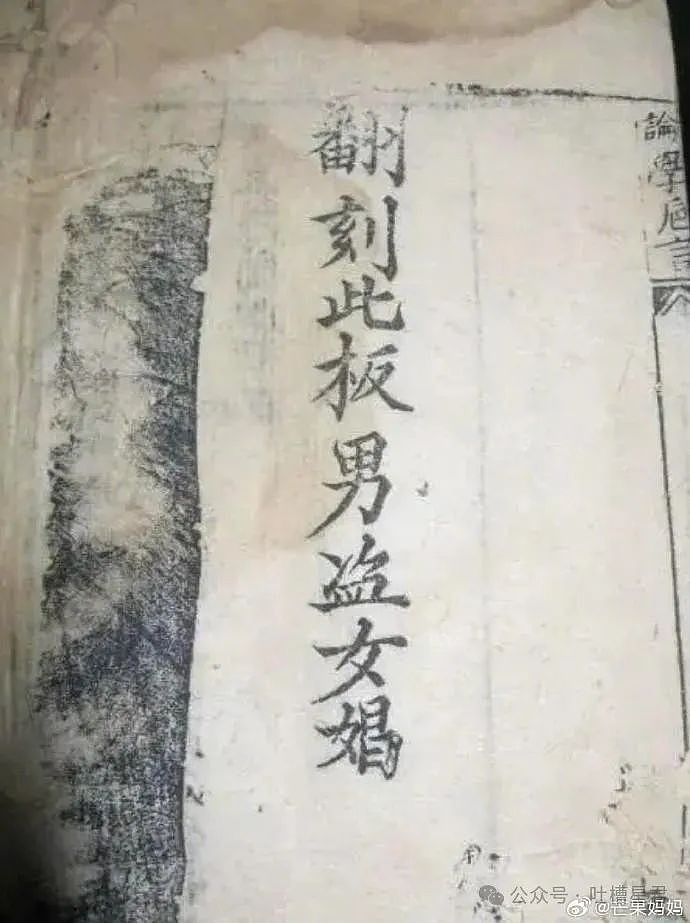 論學言
翻刻此板男盗女娼
公众号 · 吐槽星君
@芒果妈妈